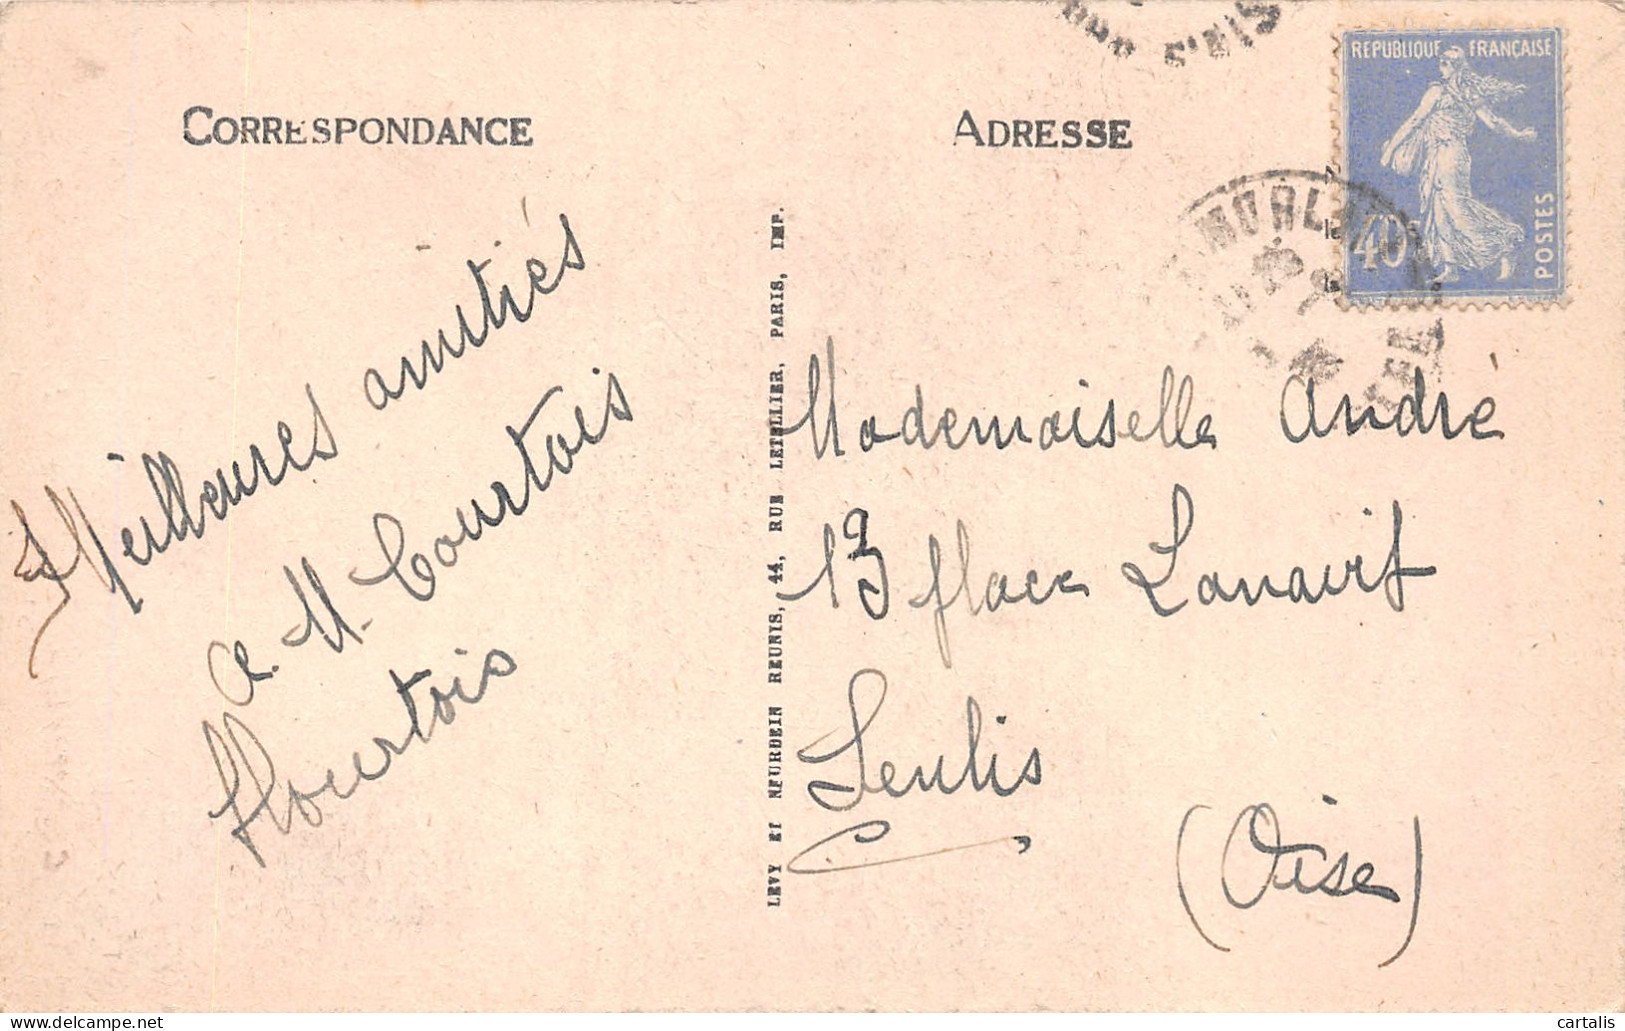 CORRESPONDANCE
ADRESSE
REPUBLIQUE FRANÇAISE
40c
POSTES
Meilleures amitiés
a. M. Courtois
Mademoiselle André
13 place Lanavit
Senlis
(Oise)
LEVY ET NEURDEIN REUNIS, 44, RUE LETELLIER, PARIS, IMP.
cartalis